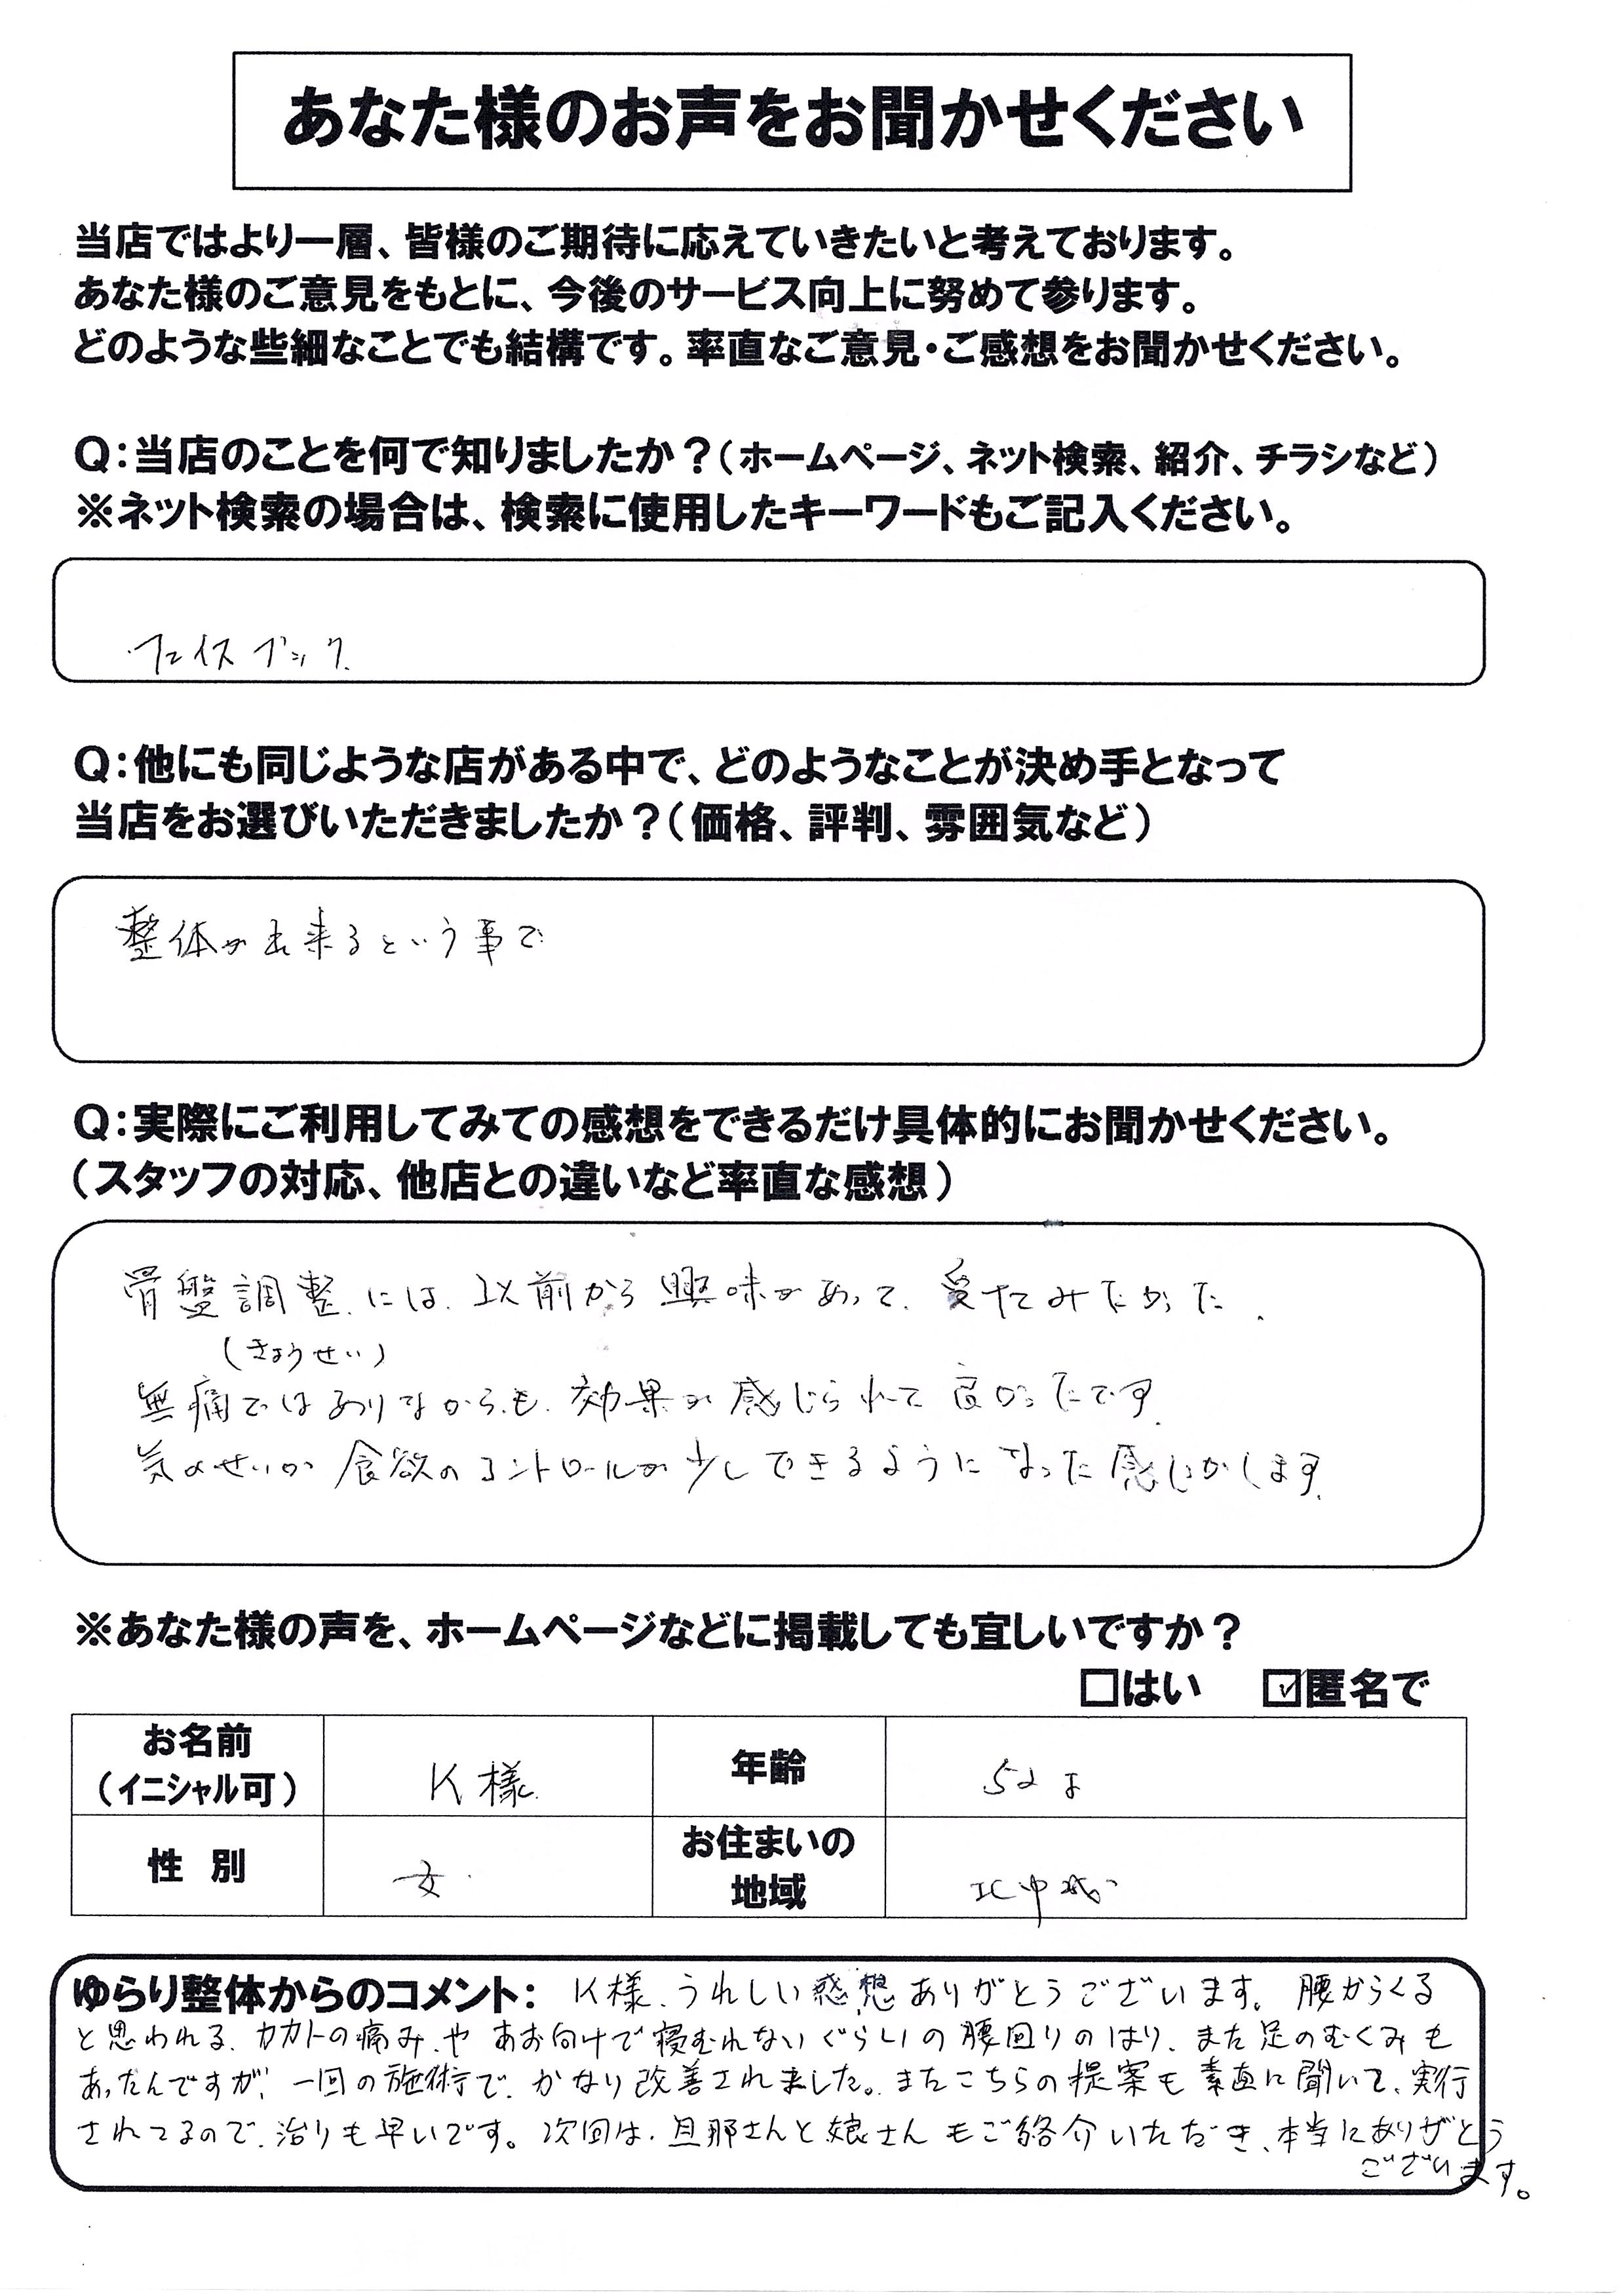 あなた様のお声をお聞かせください
当店ではより一層、皆様のご期待に応えていきたいと考えております。
あなた様のご意見をもとに、今後のサービス向上に努めて参ります。
どのような些細なことでも結構です。率直なご意見・ご感想をお聞かせください。
Q:当店のことを何で知りましたか？（ホームページ、ネット検索、紹介、チラシなど）
※ネット検索の場合は、検索に使用したキーワードもご記入ください。
・フェイスブック.
Q:他にも同じような店がある中で、どのようなことが決め手となって
当店をお選びいただきましたか？（価格、評判、雰囲気など）
整体が出来るという事で
Q:実際にご利用してみての感想をできるだけ具体的にお聞かせください。
（スタッフの対応、他店との違いなど率直な感想）
骨盤調整.には.以前から興味があって.受けてみたかった.
（きょうせい）
無痛ではありながらも.効果が感じられて良かったです.
気のせいか食欲のコントロールが少しできるようになった感じがします.
※あなた様の声を、ホームページなどに掲載しても宜しいですか？
□はい ☑匿名で
お名前
（イニシャル可） K様. 年齢 52才
性 別 女. お住まいの
地域 北中城
ゆらり整体からのコメント： K様.うれしい感想ありがとうございます。腰からくる
と思われる.カカトの痛み.やあお向けで寝むれないぐらいの腰回りのはり.また足のむくみも
あったんですが、一回の施術で.かなり改善されました。またこちらの提案も素直に聞いて、実行
されてるので、治りも早いです。次回は.旦那さんと娘さんもご紹介いただき、本当にありがとう
ございます。